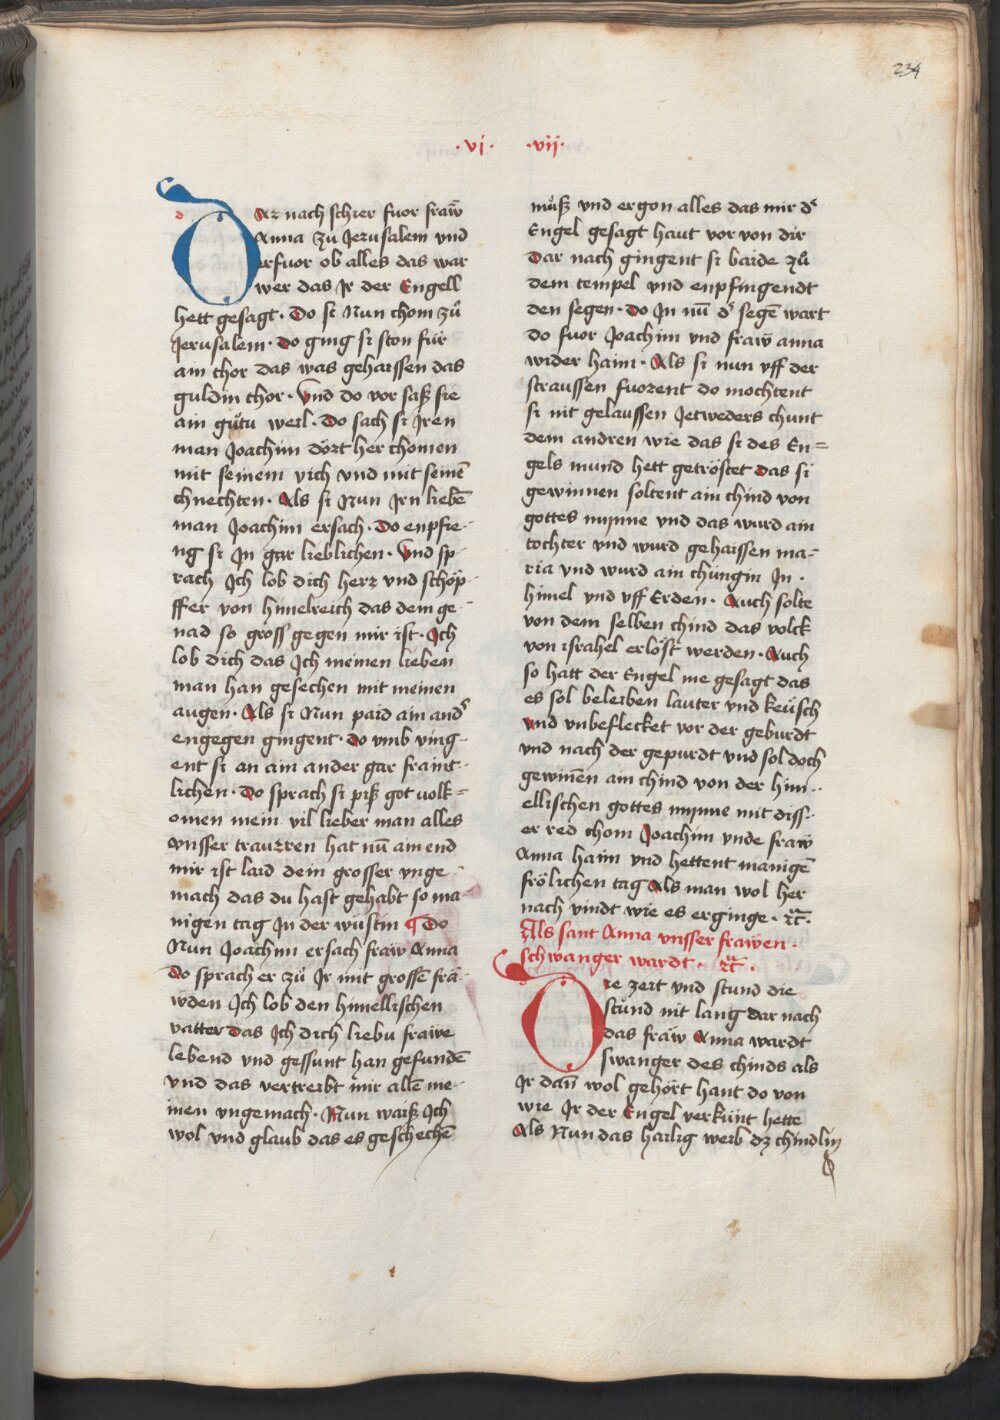 234
·vj· ·vij·
DAr nach schier fuor fraw̄
Anna zů Jerusalem vnd
erfuor ob alles das war
wer das Jr der Engell
hett gesagt · Do si Nun chom zů
Jerusalem · do ging si ston für
ain thor das was gehaissen das
guldin thor · Vnd do vor saß sie
ain gůtu weil · Do sach si Jren
man Joachim dört her chomen
mit seinem vich vnd mit seinē
chnechten · Als si Nun Jrn liebē
man Joachim ersach · Do enpfie-
ng si Jn gar lieblichen · Vnd sp-
rach Jch lob dich herr vnd schöp-
ffer von himelreich das dem ge-
nad so gross gegen mir ist · Jch
lob dich das Jch meinen lieben
man han gesechen mit meinen
augen · Als si Nun paid ain and˜
engegen gingent · do vmb ving-
ent si an ain ander gar fraint-
lichen · Do sprach si piß got volk=
omen mein vil lieber man alles
vnsser traurren hat nū ain end
mir ist laid dein grosser vnge-
mach das du hast gehabt so ma-
nigen tag Jn der wüstin ¶ Do
Nun Joachim ersach fraw Anna
Do sprach er zů Jr mit grossē frä-
wden Jch lob den himellischen
vatter das Jch dich liebu frawe
lebend vnd gessunt han gefundē
vnd das vertreibt mir allē me-
inen vngemach · Nun waiß Jch
wol vnd glaub das es geschechē
můß vnd ergon alles das mir d˜
Engel gesagt haut vor von dir
Dar nach gingent si baide zů
dem tempel vnd enpfingendt
den segen · do Jn nū d˜ segē wart
do fuor Joachim vnd fraw anna
wider haim · Als si nun vff der
straussen fuorent do mochtent
si nit gelaussen Jetweders chunt
dem andren wie das si des En=
gels mund hett getröstet das si
gewinnen soltent ain chind von
gottes mynne vnd das wurd ain
tochter vnd wurd gehaissen ma-
ria vnd wurd ain chüngin Jn ·
himel vnd vff Erden · Auch solte
von dem selben chind das volck
von israhel erlöst werden · Auch
so hatt der Engel me gesagt das
es sol beleiben lauter vnd keüsch
vnd vnbeflecket vor der geburdt
vnd nach der gepurdt vnd sol doch
gewinēn ain chind von der him-
ellischen gottes mynne mit diss-
er red chom Joachim vnde fraw
Anna haim vnd hettent manigē
frölichen tag Als man wol her
nach vindt wie es erginge · ꝛc̄ ·
Als sant Anna vnsser frawen ·
schwanger wardt · ꝛc̄ ·
Die zeit vnd stund die
stůnd nit lang dar nach
das fraw Anna wardt
swanger des chinds als
Jr dañ wol gehört hant do von
wie Jr der Engel verkünt hette
Als Nun das hailig weib dz chindlin